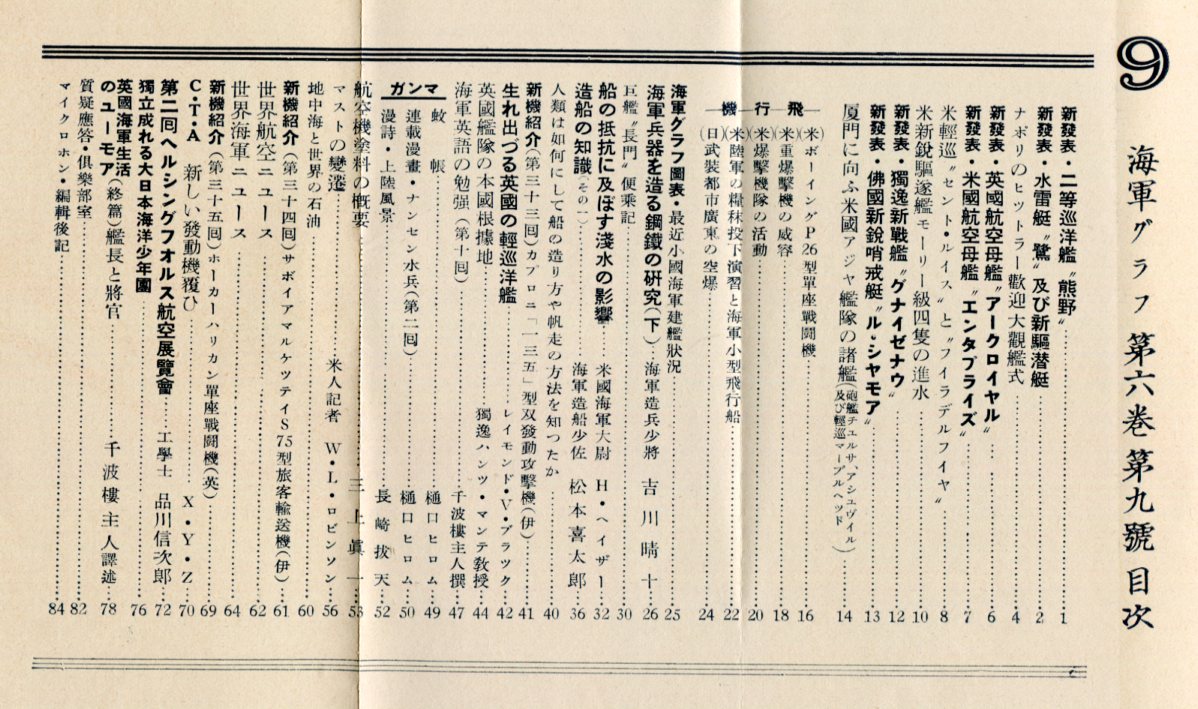 9
海軍グラフ 第六巻第九號 目次
新發表・二等巡洋艦〝熊野〟 1
新發表・水雷艇〝鷺〟及び新驅潜艇 2
ナポリのヒットラー歡迎大觀艦式 4
新發表・英國航空母艦〝アークロイヤル〟 6
新發表・米國航空母艦〝エンタプライズ〟 7
米輕巡〝セント・ルイス〟と〝フイラデルフイヤ〟 8
米新銳驅逐艦モーリー級四隻の進水 10
新發表・獨逸新戰艦〝グナイゼナウ〟 12
新發表・佛國新銳哨戒艇〝ル・シヤモア〟 13
厦門に向ふ米國アジヤ艦隊の諸艦(砲艦チエルサ、アシエヴイル及び輕巡マーブルヘツド) 14
飛行機
(米)ボーイングP26型單座戰鬪機 16
(米)重爆擊機の威容 18
(米)爆擊機隊の活動 20
(米)陸軍の糧秣投下演習と海軍小型飛行船 22
(日)武裝都市廣東の空爆 24
海軍グラフ圖表・最近小國海軍建艦狀況 25
海軍兵器を造る鋼鐵の硏究(下) 海軍造兵少將 吉川晴十 26
巨艦〝長門〟便乘記 30
船の抵抗に及ぼす淺水の影響 米國海軍大尉 H・ヘイザー 32
造船の知識(その一) 海軍造船少佐 松本喜太郎 36
人類は如何にして船の造り方や帆走の方法を知つたか 40
新機紹介(第三十三回)カプロニ「一三五」型双發動攻擊機(伊) 41
生れ出づる英國の輕巡洋艦 レイモンド・V・ブラツク 42
英國艦隊の本國根據地 獨逸ハンツ・マンテ敎授 44
海軍英語の勉强(第十回) 千波樓主人撰 47
マンガ
蚊帳 樋口ヒロム 49
連載漫畫・ナンセン水兵(第二回) 樋口ヒロム 50
漫詩・上陸風景 長崎拔天 52
航空機塗料の槪要 三上眞一 53
マストの變遷 米人記者 W・L・ロビンソン 56
地中海と世界の石油 60
新機紹介(第三十四回)サボイアマルケツテイS75型旅客輸送機(伊) 61
世界航空ニュース 62
世界海軍ニュース 64
新機紹介(第三十五回)ホーカーハリカン單座戰鬪機(英) 69
C・T・A 新しい發動機覆ひ X・Y・Z 70
第二回ヘルシングフオルス航空展覽會 工學士 品川信次郎 72
獨立成れる大日本海洋少年團 76
英國海軍生活のユーモア(終篇)艦長と將官 千波樓主人譯述 78
質疑應答・俱樂部室 82
マイクロホン・編輯後記 84